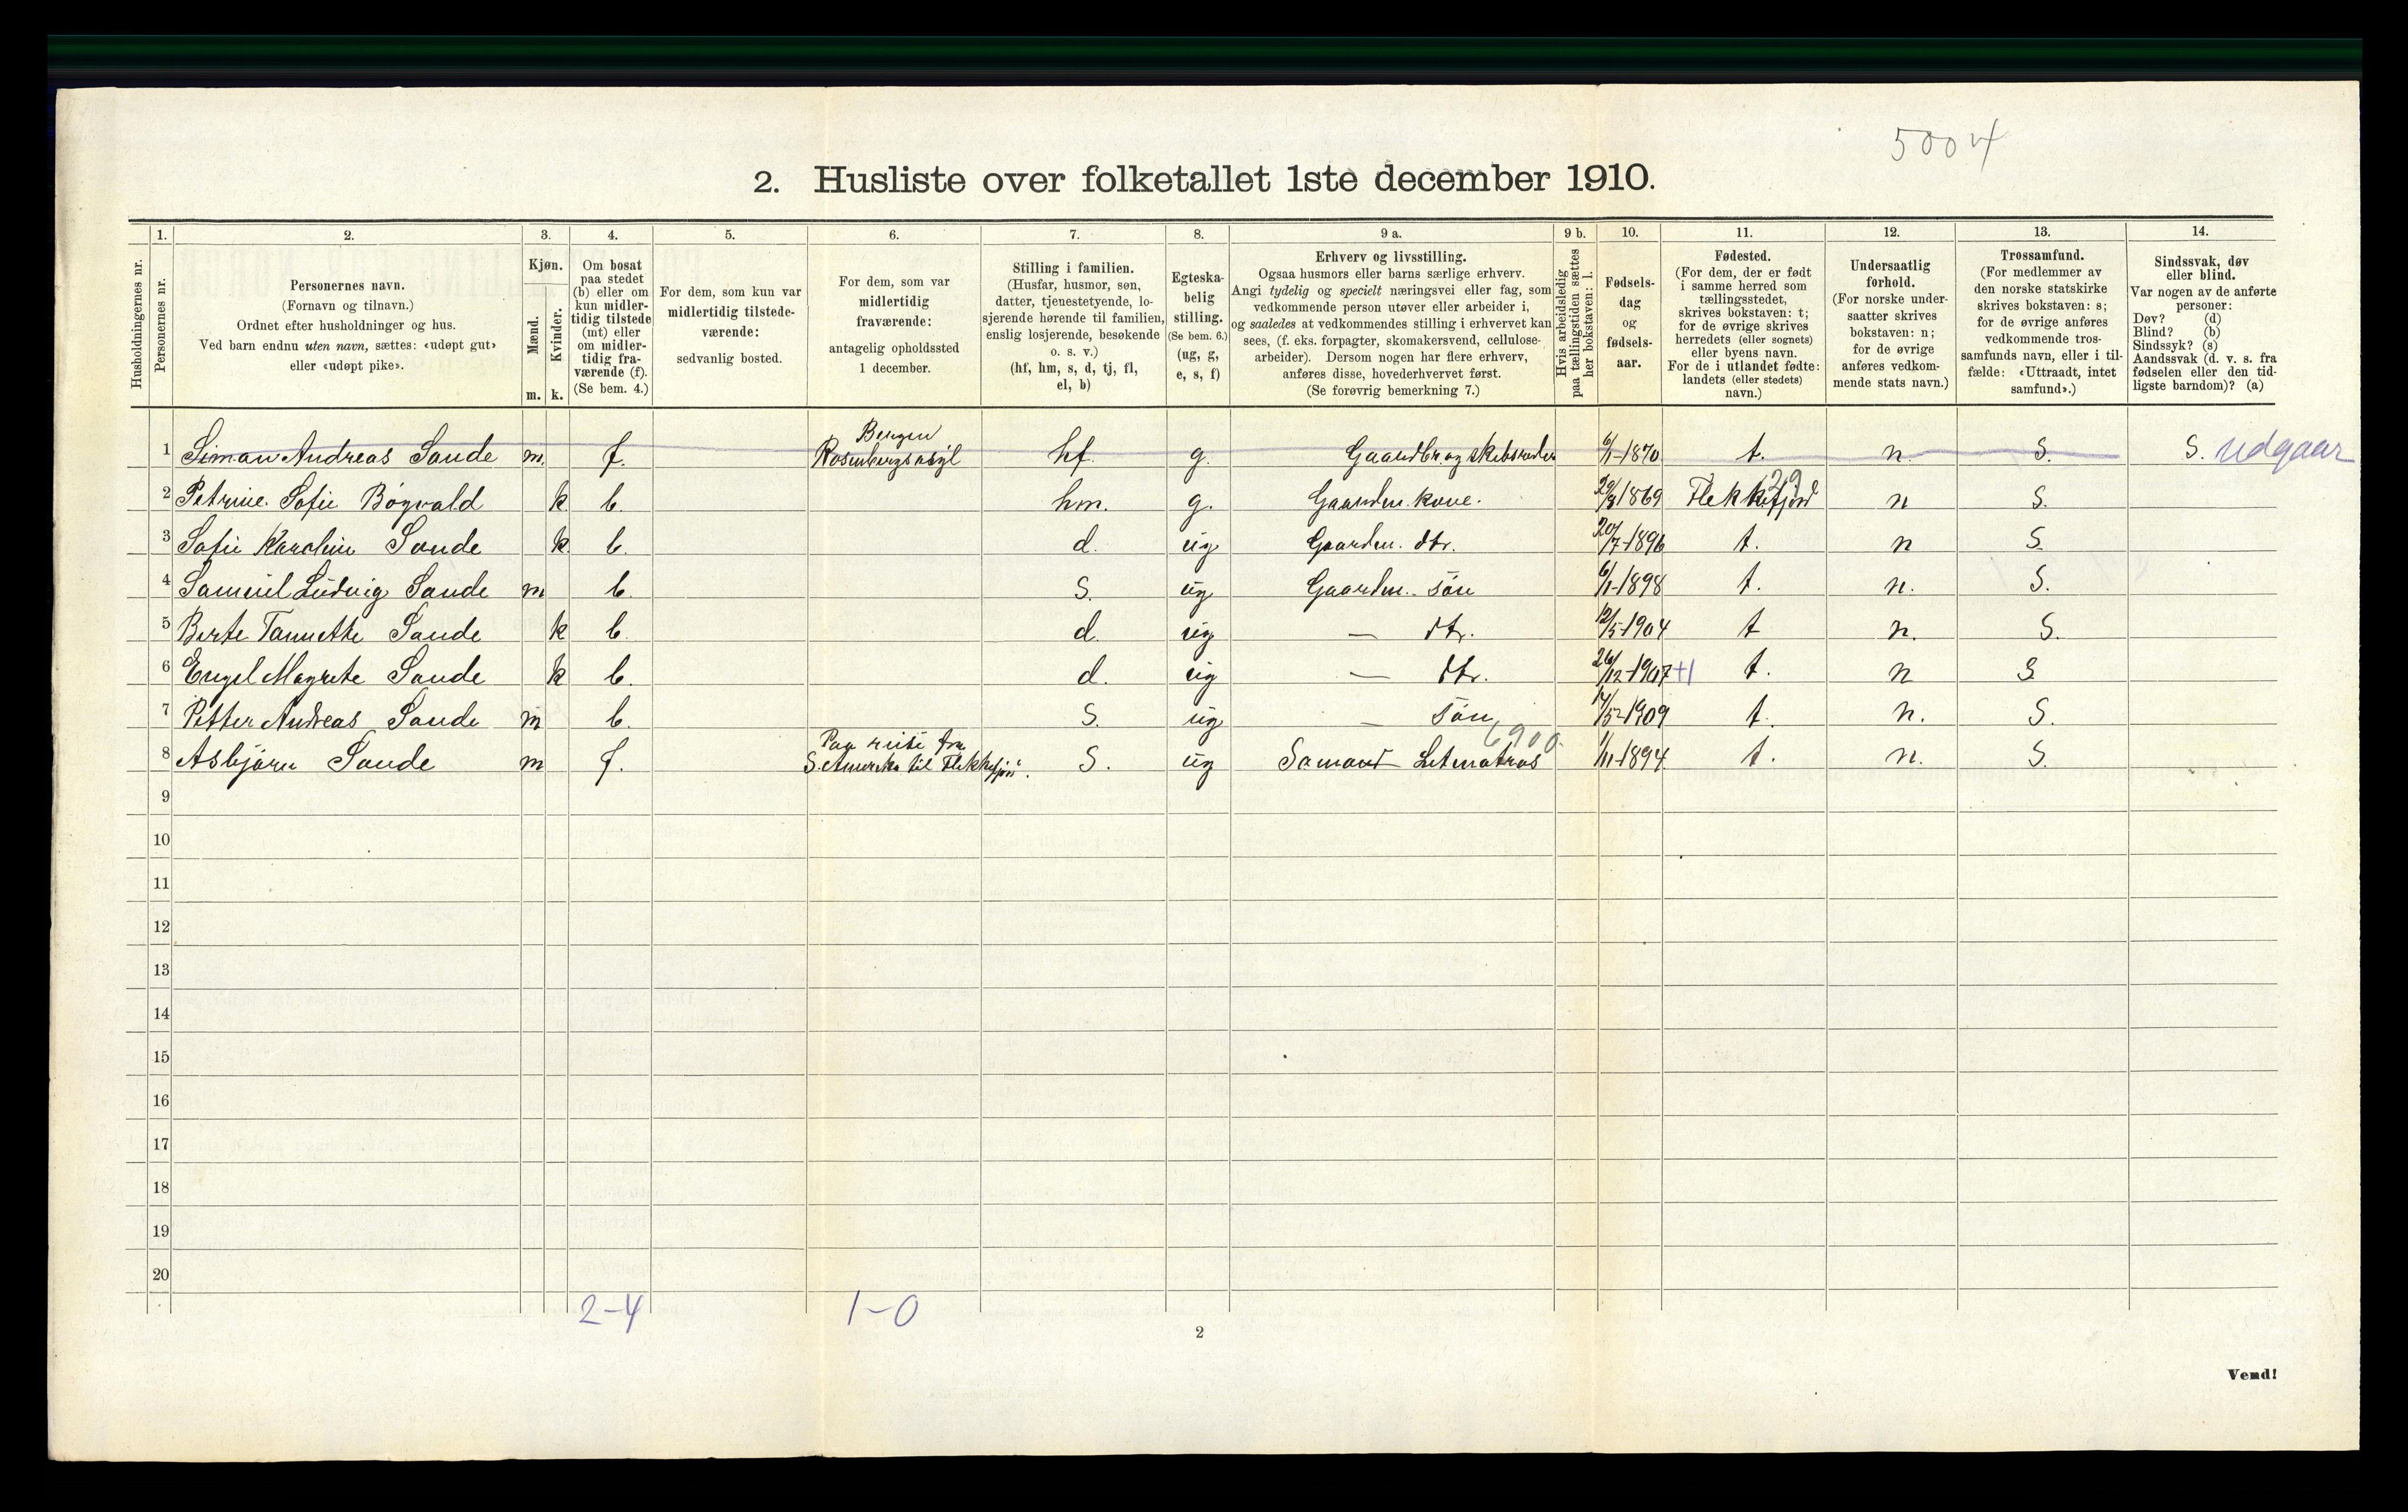 5004
2. Husliste over folketallet 1ste december 1910.
1. 2. 3. 4. 5. 6. 7. 8. 9 a. 9 b. 10. 11. 12. 13. 14.
Husholdningernes nr.
Personernes nr.
Personernes navn.
(Fornavn og tilnavn.)
Ordnet efter husholdninger og hus.
Ved barn endnu uten navn, sættes: «udøpt gut»
eller «udøpt pike».
Kjøn.
Mænd.
Kvinder.
m. k.
Om bosat
paa stedet
(b) eller om
kun midler-
tidig tilstede
(mt) eller
om midler-
tidig fra-
værende (f).
(Se bem. 4.)
For dem, som kun var
midlertidig tilstede-
værende:
sedvanlig bosted.
For dem, som var
midlertidig
fraværende:
antagelig opholdssted
1 december.
Stilling i familien.
(Husfar, husmor, søn,
datter, tjenestetyende, lo-
sjerende hørende til familien,
enslig losjerende, besøkende
o. s. v.)
(hf, hm, s, d, tj, fl,
el, b)
Egteska-
belig
stilling.
(Se bem. 6.)
(ug, g,
e, s, f)
Erhverv og livsstilling.
Ogsaa husmors eller barns særlige erhverv.
Angi tydelig og specielt næringsvei eller fag, som
vedkommende person utøver eller arbeider i,
og saaledes at vedkommendes stilling i erhvervet kan
sees, (f. eks. forpagter, skomakersvend, cellulose-
arbeider). Dersom nogen har flere erhverv,
anføres disse, hovederhvervet først.
(Se forøvrig bemerkning 7.)
Hvis arbeidsledig
paa tællingstiden sættes
her bokstaven: l.
Fødsels-
dag
og
fødsels-
aar.
Fødested.
(For dem, der er født
i samme herred som
tællingsstedet,
skrives bokstaven: t;
for de øvrige skrives
herredets (eller sognets)
eller byens navn.
For de i utlandet fødte:
landets (eller stedets)
navn.)
Undersaatlig
forhold.
(For norske under-
saatter skrives
bokstaven: n;
for de øvrige
anføres vedkom-
mende stats navn.)
Trossamfund.
(For medlemmer av
den norske statskirke
skrives bokstaven: s;
for de øvrige anføres
vedkommende tros-
samfunds navn, eller i til-
fælde: «Uttraadt, intet
samfund».)
Sindssvak, døv
eller blind.
Var nogen av de anførte
personer:
Døv? (d)
Blind? (b)
Sindssyk? (s)
Aandssvak (d. v. s. fra
fødselen eller den tid-
ligste barndom)? (a)
Bergen
1 Siman Andreas Sande m. f. Rosenbergs asyl hf. g. Gaardbr. og skibsreder 6/1-1870 t. n. S. S. udgaar
29
2 Petrine Sofie Bøgvald k b. hm. g. Gaardm. kone. 1869 Flekkefjord n S.
3 Sofie Karoline Sande k. b. d. ug Gaardm. dtr. 20/7-1896 t. n S.
4 Samuel Ludvig Sande m b. S. ug Gaardm. søn 6/1-1898 t. n. S.
5 Berte Tannette Sande k b. d. ug — dtr. 12/5-1904 t n. S.
6 Engel Magrete Sande k b. d. ug — dtr. 26/12-1907 +1 t. n S
7 Petter Andreas Sande m b. S. ug — søn 14/5-1909 t. n. S.
6900.
Paa reise fra
8 Asbjørn Sande m f. S. Amerika til Flekkefjord. S. ug Sømand Letmatros 1/11-1894 t. n. S.
9
10
11
12
13
14
15
16
17
18
19
20
2-4 1-0
2
Vend!